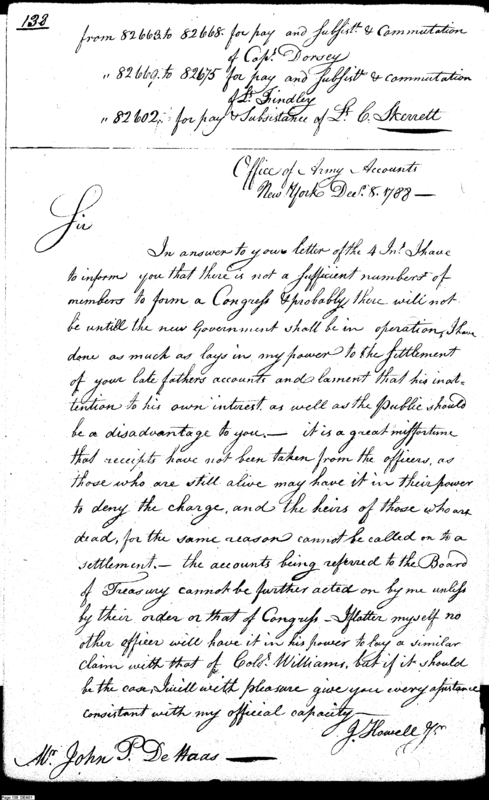 133
from 82663 to 82668. for pay and Subsist.t & Commutation
of Cap.t Dorsey
" 82669. to 82675 for pay and Subsist.t & commutation
of L.t Findley
" 82602. for pay & Subsistance of L.t C. Skerrett
Office of Army Accounts
New York Dec.r 8. 1788 —
Sir
In answer to your letter of the 4 In.t I have
to inform you that there is not a sufficient number of
members to form a Congress & probably there will not
be untill the new Government shall be in operation, I have
done as much as lays in my power to the Settlement
of your late fathers accounts and lament that his inat-
tention to his own interest, as well as the public should
be a disadvantage to you. — it is a great misfortune
that receipts have not been taken from the officers, as
those who are still alive may have it in their power
to deny the charge, and the heirs of those who are
dead, for the same reason cannot be called on to a
settlement. — the accounts being referred to the Board
of Treasury cannot be further acted on by me unless
by their order or that of Congress — I flatter myself no
other officer will have it in his power to lay a similar
claim with that of Col.o Williams, but if it should
be the case, I will with pleasure give you every assistance
consistant with my official capacity —
J. Howell J.r
M.r John P. De Haas